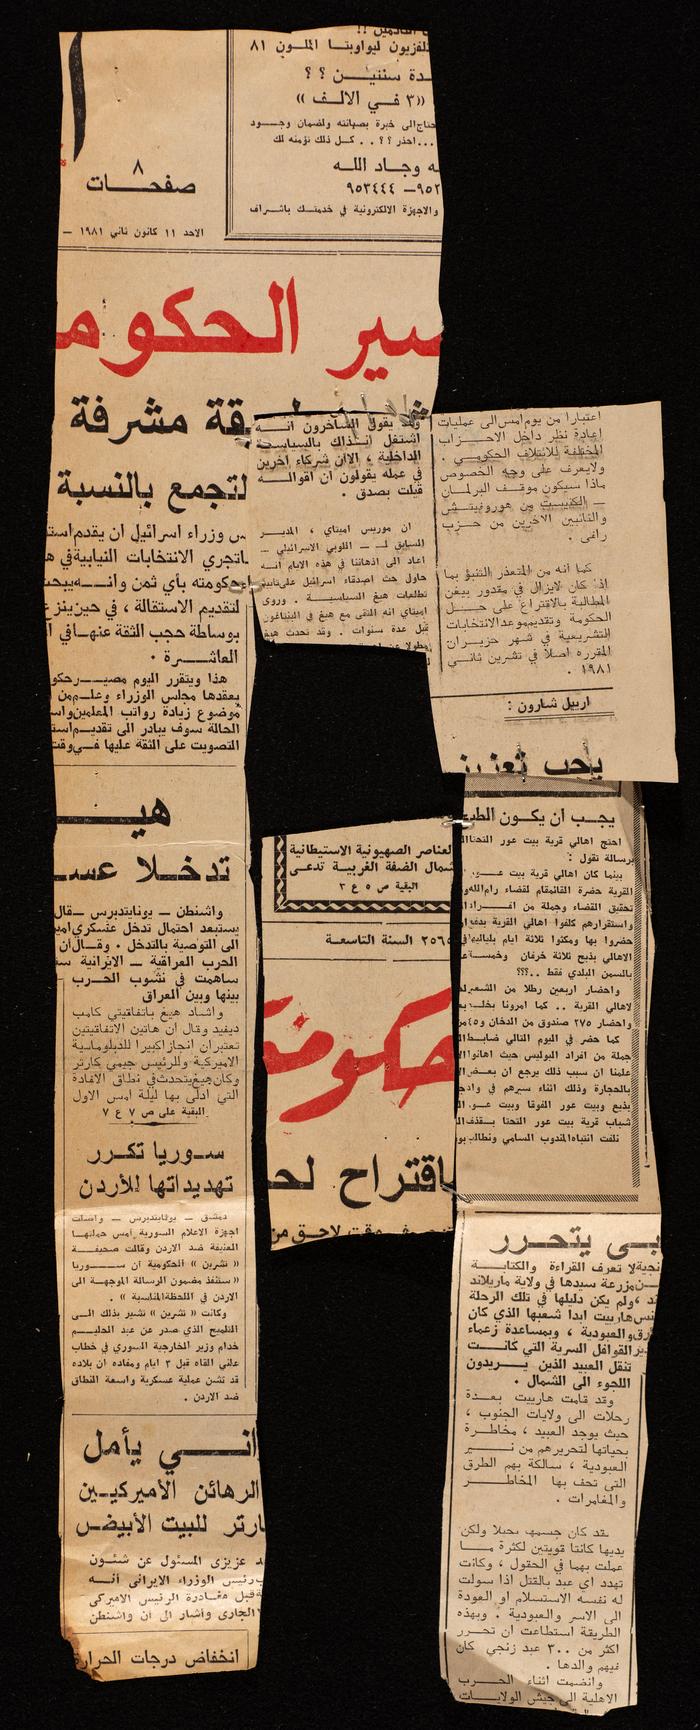 القادمين !!
تلفزيون ليواوبتا الملون ٨١
دة سنتين ؟ ؟
«٣ في الالف »
حتاج الى خبرة بصيانته ولضمان وجود
... احذر ؟ ؟ . . كل ذلك نؤمنه لك
ه وجاد الله
٩٥٢ـ ٩٥٣٤٤٤
والاجهزة الالكترونية في خدمتك باشراف
٨
صفحات
الاحد ١١ كانون ثاني ١٩٨١ ـ
سير الحكوم
يقة مشرفة
لتجمع بالنسبة
س وزراء اسرائيل ان يقدم است
اتجري الانتخابات النيابية في ه
حكومته بأي ثمن وانه يبحث
لتقديم الاستقالة ، في حين ينزع
بوساطة حجب الثقة عنها في ال
العاشرة .
هذا ويتقرر اليوم مصير حكو
يعقدها مجلس الوزراء وعلم من
موضوع زيادة رواتب المعلمين واس
الحالة سوف يبادر الى تقديم است
التصويت على الثقة عليها في وقت
هي
تدخلا عس
واشنطن ـ يونايتدبرس ـ قال
يستبعد احتمال تدخل عسكري امير
الى التوصية بالتدخل . وقال ان
الحرب العراقية ـ الايرانية سا
ساهمت في نشوب الحرب
بينها وبين العراق
واشاد هيغ باتفاقيتي كامب
ديفيد وقال ان هاتين الاتفاقيتين
تعتبران انجازا كبيرا للدبلوماسية
الاميركية وللرئيس جيمي كارتر
وكان هيغ يتحدث في نطاق الافادة
التي ادلى بها ليلة امس الاول
البقية على ص ٧ ع ٧
سوريا تكرر
تهديداتها للأردن
دمشق ـ يونايتدبرس ـ واصلت
اجهزة الاعلام السورية امس حملتها
العنيفة ضد الاردن وقالت صحيفة
« تشرين » الحكومية ان سوريا
« ستنفذ مضمون الرسالة الموجهة الى
الاردن في اللحظة المناسبة » .
وكانت « تشرين » تشير بذلك الى
التلميح الذي صدر عن عبد الحليم
خدام وزير الخارجية السوري في خطاب
علني القاه قبل ٣ ايام ومفاده ان بلاده
قد تشن عملية عسكرية واسعة النطاق
ضد الاردن .
اني يأمل
الرهائن الأميركيين
ارتر للبيت الأبيض
د عزيزي المسئول عن شئون
رئيس الوزراء الايراني أنه
قبل مغادرة الرئيس الاميركي
الجاري وأشار الى أن واشنطن
انخفاض درجات الحرارة
وقد يقول الساخرون انه
اشتغل انذاك بالسياسة
الداخلية ، الا ان شركاء اخرين
في عمله يقولون ان اقواله
قيلت بصدق .
ان موريس اميتاي ، المدير
السابق لـ ـ اللوبي الاسرائيلي ـ
اعاد الى اذهاننا في هذه الايام انه
حاول حث اصدقاء اسرائيل على تأييد
تطلعات هيغ السياسية . وروى
اميتاي انه التقى مع هيغ في البنتاغون
قبل عدة سنوات . وقد تحدث هيغ
اعتبارا من يوم امس الى عمليات
اعادة نظر داخل الاحزاب
المختلفة للائتلاف الحكومي .
ولا يعرف على وجه الخصوص
ماذا سيكون موقف البرلمان
ـ الكنيست من هوروفيتش
والنائبين الآخرين من حزب
رافي .
كما انه من المتعذر التنبؤ بما
اذا كان لايزال في مقدور بيغن
المطالبة بالاقتراع على حل
الحكومة وتقديم موعد الانتخابات
التشريعية في شهر حزيران
المقرره اصلا في تشرين ثاني
١٩٨١ .
اريیل شارون :
يجب تعزيز
لعناصر الصهيونية الاستيطانية
شمال الضفة الغربية تدعى
البقية ص ٥ ع ٣
٢٥٦٥ السنة التاسعة
حكومة
اقتراح لح
يجب ان يكون الطب
احتج اهالي قرية بيت عور التحتا
برسالة تقول :
بينما كان اهالي قرية بيت عور
القرية حضرة القائمقام لقضاء رام الله و
تحقيق القضاء وجملة من افراد
واستقرارهم كلفوا اهالي القرية بدفع
حضروا بها ومكثوا ثلاثة ايام بلياليه
الاهالي بذبح ثلاثة خرفان وخمسة
بالسمن البلدي فقط ..؟؟؟
واحضار اربعين رطلا من الشعير
لاهالي القرية .. كما امرونا بخلـ
واحضار ٢٧٥ صندوق من الدخان و٤٥ من
كما حضر في اليوم التالي ضابط
جملة من افراد البوليس حيث اهانوا
علمنا ان سبب ذلك يرجع ان بعض
بالحجارة وذلك اثناء سيرهم في واد
بذيع وبيت عور الفوقا وبيت عو
شباب قرية بيت عور التحتا بقذف
نلفت انتباه المندوب السامي ونطالب
بي يتحرر
لا تعرف القراءة والكتابة
من مزرعة سيدها في ولاية ماريلاند
ولم يكن دليلها في تلك الرحلة
هاربيت ابدا شعبها الذي كان
والعبودية ، وبمساعدة زعماء
القوافل السرية التي كانت
تنقل العبيد الذين يريدون
اللجوء الى الشمال .
وقد قامت هارييت بعدة
رحلات الى ولايات الجنوب ،
حيث يوجد العبيد ، مخاطرة
بحياتها لتحريرهم من نير
العبودية ، سالكة بهم الطرق
التي تحف بها المخاطر
والمغامرات .
قد كان جسمها نحيلا ولكن
يديها كانتا قويتين لكثرة ما
عملت بهما في الحقول ، وكانت
تهدد اي عبد بالقتل اذا سولت
له نفسه الاستسلام او العودة
الى الاسر والعبودية . وبهذه
الطريقة استطاعت ان تحرر
اكثر من ٣٠٠ عبد زنجي كان
فيهم والدها .
وانضمت اثناء الحرب
الاهلية الى جيش الولايات